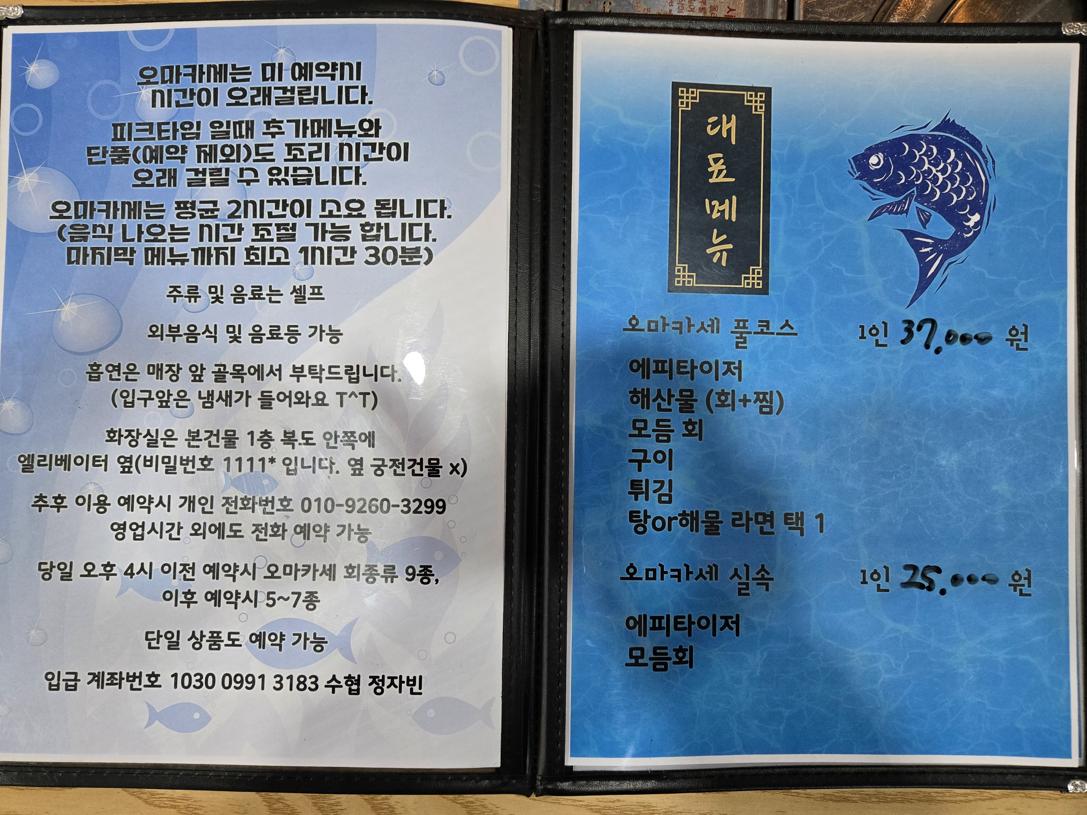 오마카세는 미 예약시
시간이 오래걸립니다.
피크타임 일때 추가메뉴와
단품(예약 제외)도 조리 시간이
오래 걸릴 수 있습니다.
오마카세는 평균 2시간이 소요 됩니다.
(음식 나오는 시간 조절 가능 합니다.
마지막 메뉴까지 최소 1시간 30분)
주류 및 음료는 셀프
외부음식 및 음료등 가능
흡연은 매장 앞 골목에서 부탁드립니다.
(입구앞은 냄새가 들어와요 T^T)
화장실은 본건물 1층 복도 안쪽에
엘리베이터 옆(비밀번호 1111* 입니다. 옆 궁전건물 x)
추후 이용 예약시 개인 전화번호 010-9260-3299
영업시간 외에도 전화 예약 가능
당일 오후 4시 이전 예약시 오마카세 회종류 9종,
이후 예약시 5~7종
단일 상품도 예약 가능
입금 계좌번호 1030 0991 3183 수협 정자빈
대표메뉴
오마카세 풀코스 1인 37,000 원
에피타이저
해산물 (회+찜)
모듬 회
구이
튀김
탕or해물 라면 택 1
오마카세 실속 1인 25,000 원
에피타이저
모듬회